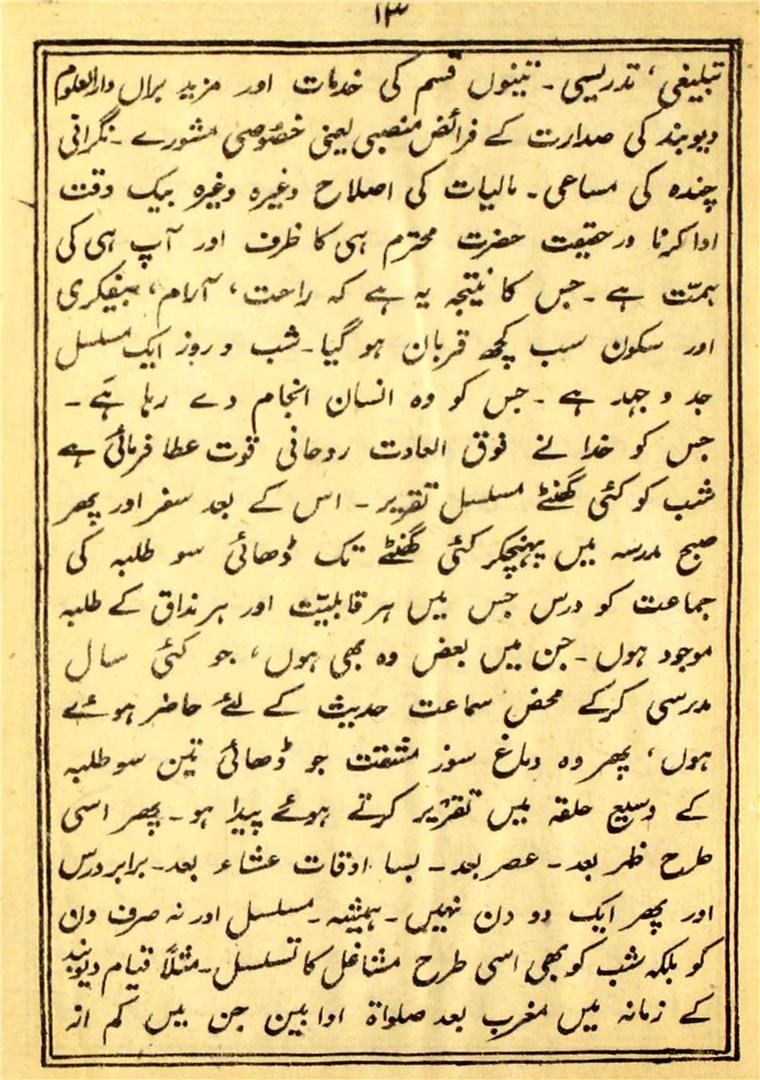 ۱۳
تبلیغی، تدریسی۔ تینوں قسم کی خدمات اور مزید براں دارالعلوم
دیوبند کی صدارت کے فرائض منصبی یعنی خصوصی مشورے۔ نگرانی
چندہ کی مساعی۔ مالیات کی اصلاح وغیرہ وغیرہ بیک وقت
ادا کرنا درحقیقت حضرت محترم ہی کا ظرف اور آپ ہی کی
ہمّت ہے۔ جس کا نتیجہ یہ ہے کہ راحت، آرام، بیفکری
اور سکون سب کچھ قربان ہو گیا۔ شب و روز ایک مسلسل
جد و جہد ہے۔ جس کو وہ انسان انجام دے رہا ہے۔
جس کو خدا نے فوق العادت روحانی قوت عطا فرمائی ہے
شب کو کئی گھنٹے مسلسل تقریر۔ اس کے بعد سفر اور پھر
صبح مدرسہ میں پہنچکر کئی گھنٹے تک ڈھائی سو طلبہ کی
جماعت کو درس جس میں ہر قابلیّت اور ہر مذاق کے طلبہ
موجود ہوں۔ جن میں بعض وہ بھی ہوں، جو کئی سال
مدرسی کرکے محض سماعت حدیث کے لئے حاضر ہوئے
ہوں، پھر وہ دماغ سوز مشقت جو ڈھائی تین سو طلبہ
کے وسیع حلقہ میں تقریر کرتے ہوئے پیدا ہو۔ پھر اسی
طرح ظہر بعد۔ عصر بعد۔ بسا اوقات عشاء بعد۔ برابر درس
اور پھر ایک دو دن نہیں۔ ہمیشہ۔ مسلسل اور نہ صرف دن
کو بلکہ شب کو بھی اسی طرح مشاغل کا تسلسل۔ مثلاً قیام دیوبند
کے زمانہ میں مغرب بعد صلواۃ اوابین جن میں کم از